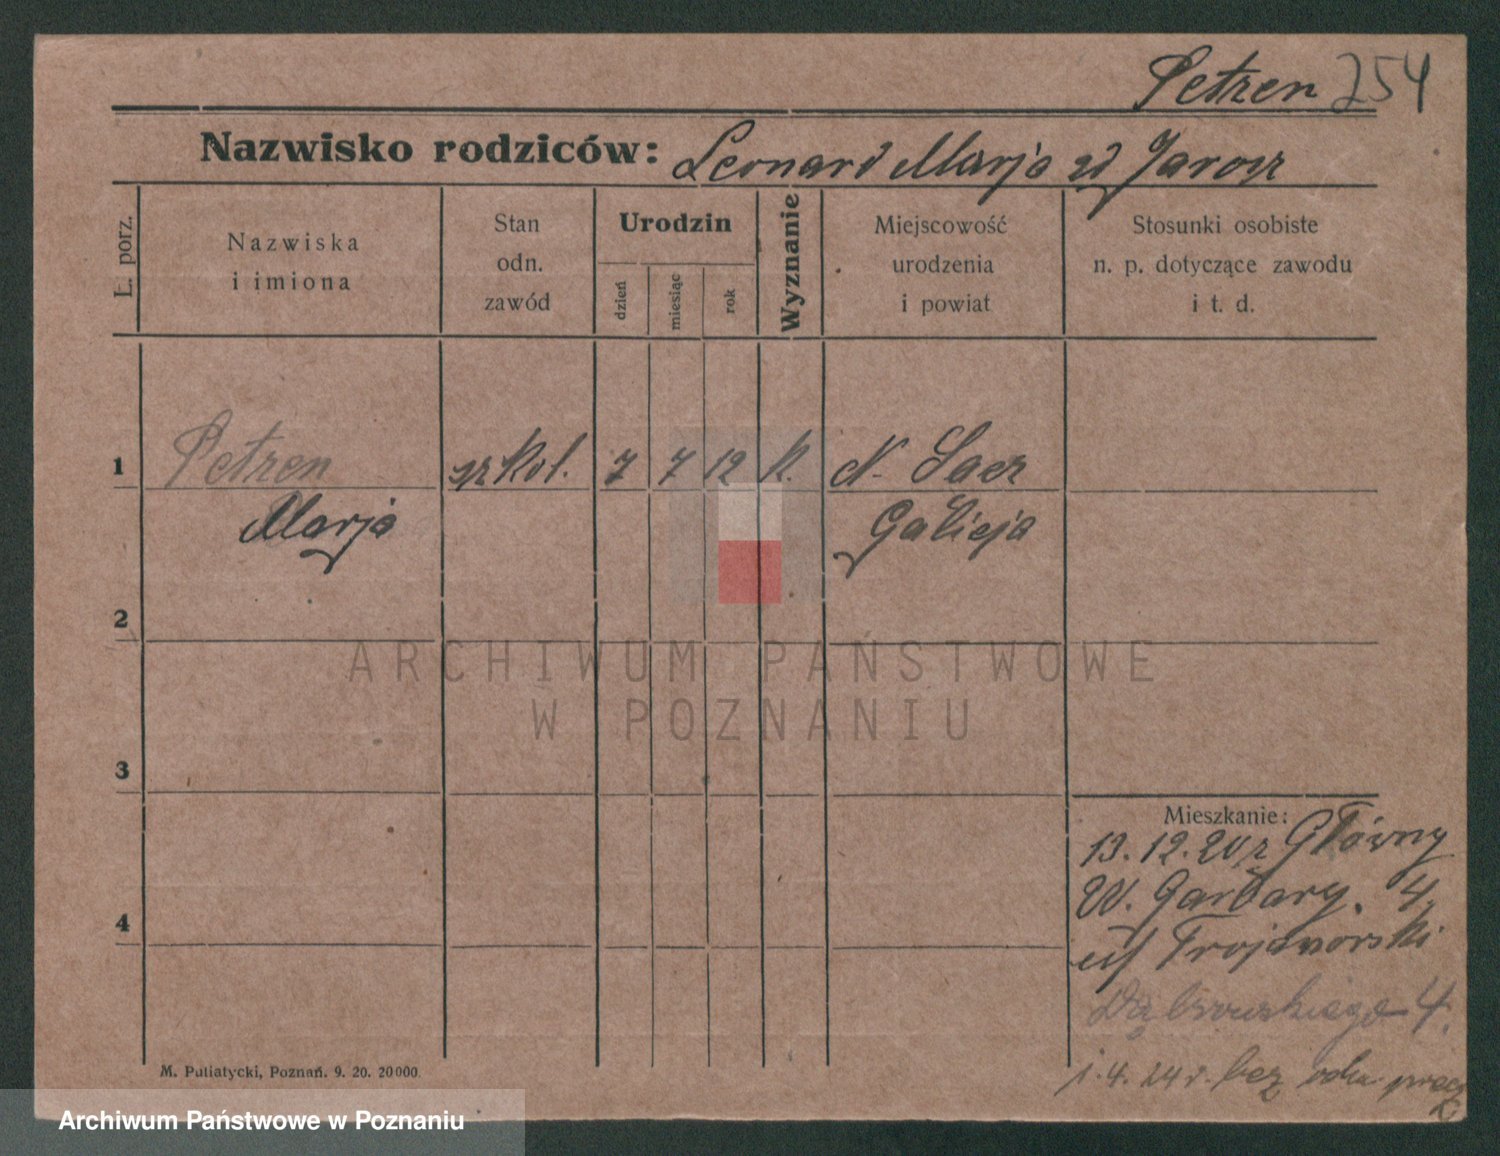 Petzen 254
Nazwisko rodziców: Leonard Marja zd Jarosz
L. porz.
Nazwiska
i imiona
Stan
odn.
zawód
Urodzin
dzień
miesiąc
rok
Wyznanie
Miejscowość
urodzenia
i powiat
Stosunki osobiste
n. p. dotyczące zawodu
i t. d.
1
Petzen
szkol.
7
7
12
k.
N. Sącz
Marja
Galicja
2
ARCHIWUM PAŃSTWOWE
W POZNANIU
3
Mieszkanie:
13.12.20 z Główny
W. Garbary. 4.
Trojanorski
4
Dąbrowskiego 4.
1.4.24 r. bez
M. Putiatycki, Poznań. 9. 20. 20000.
Archiwum Państwowe w Poznaniu